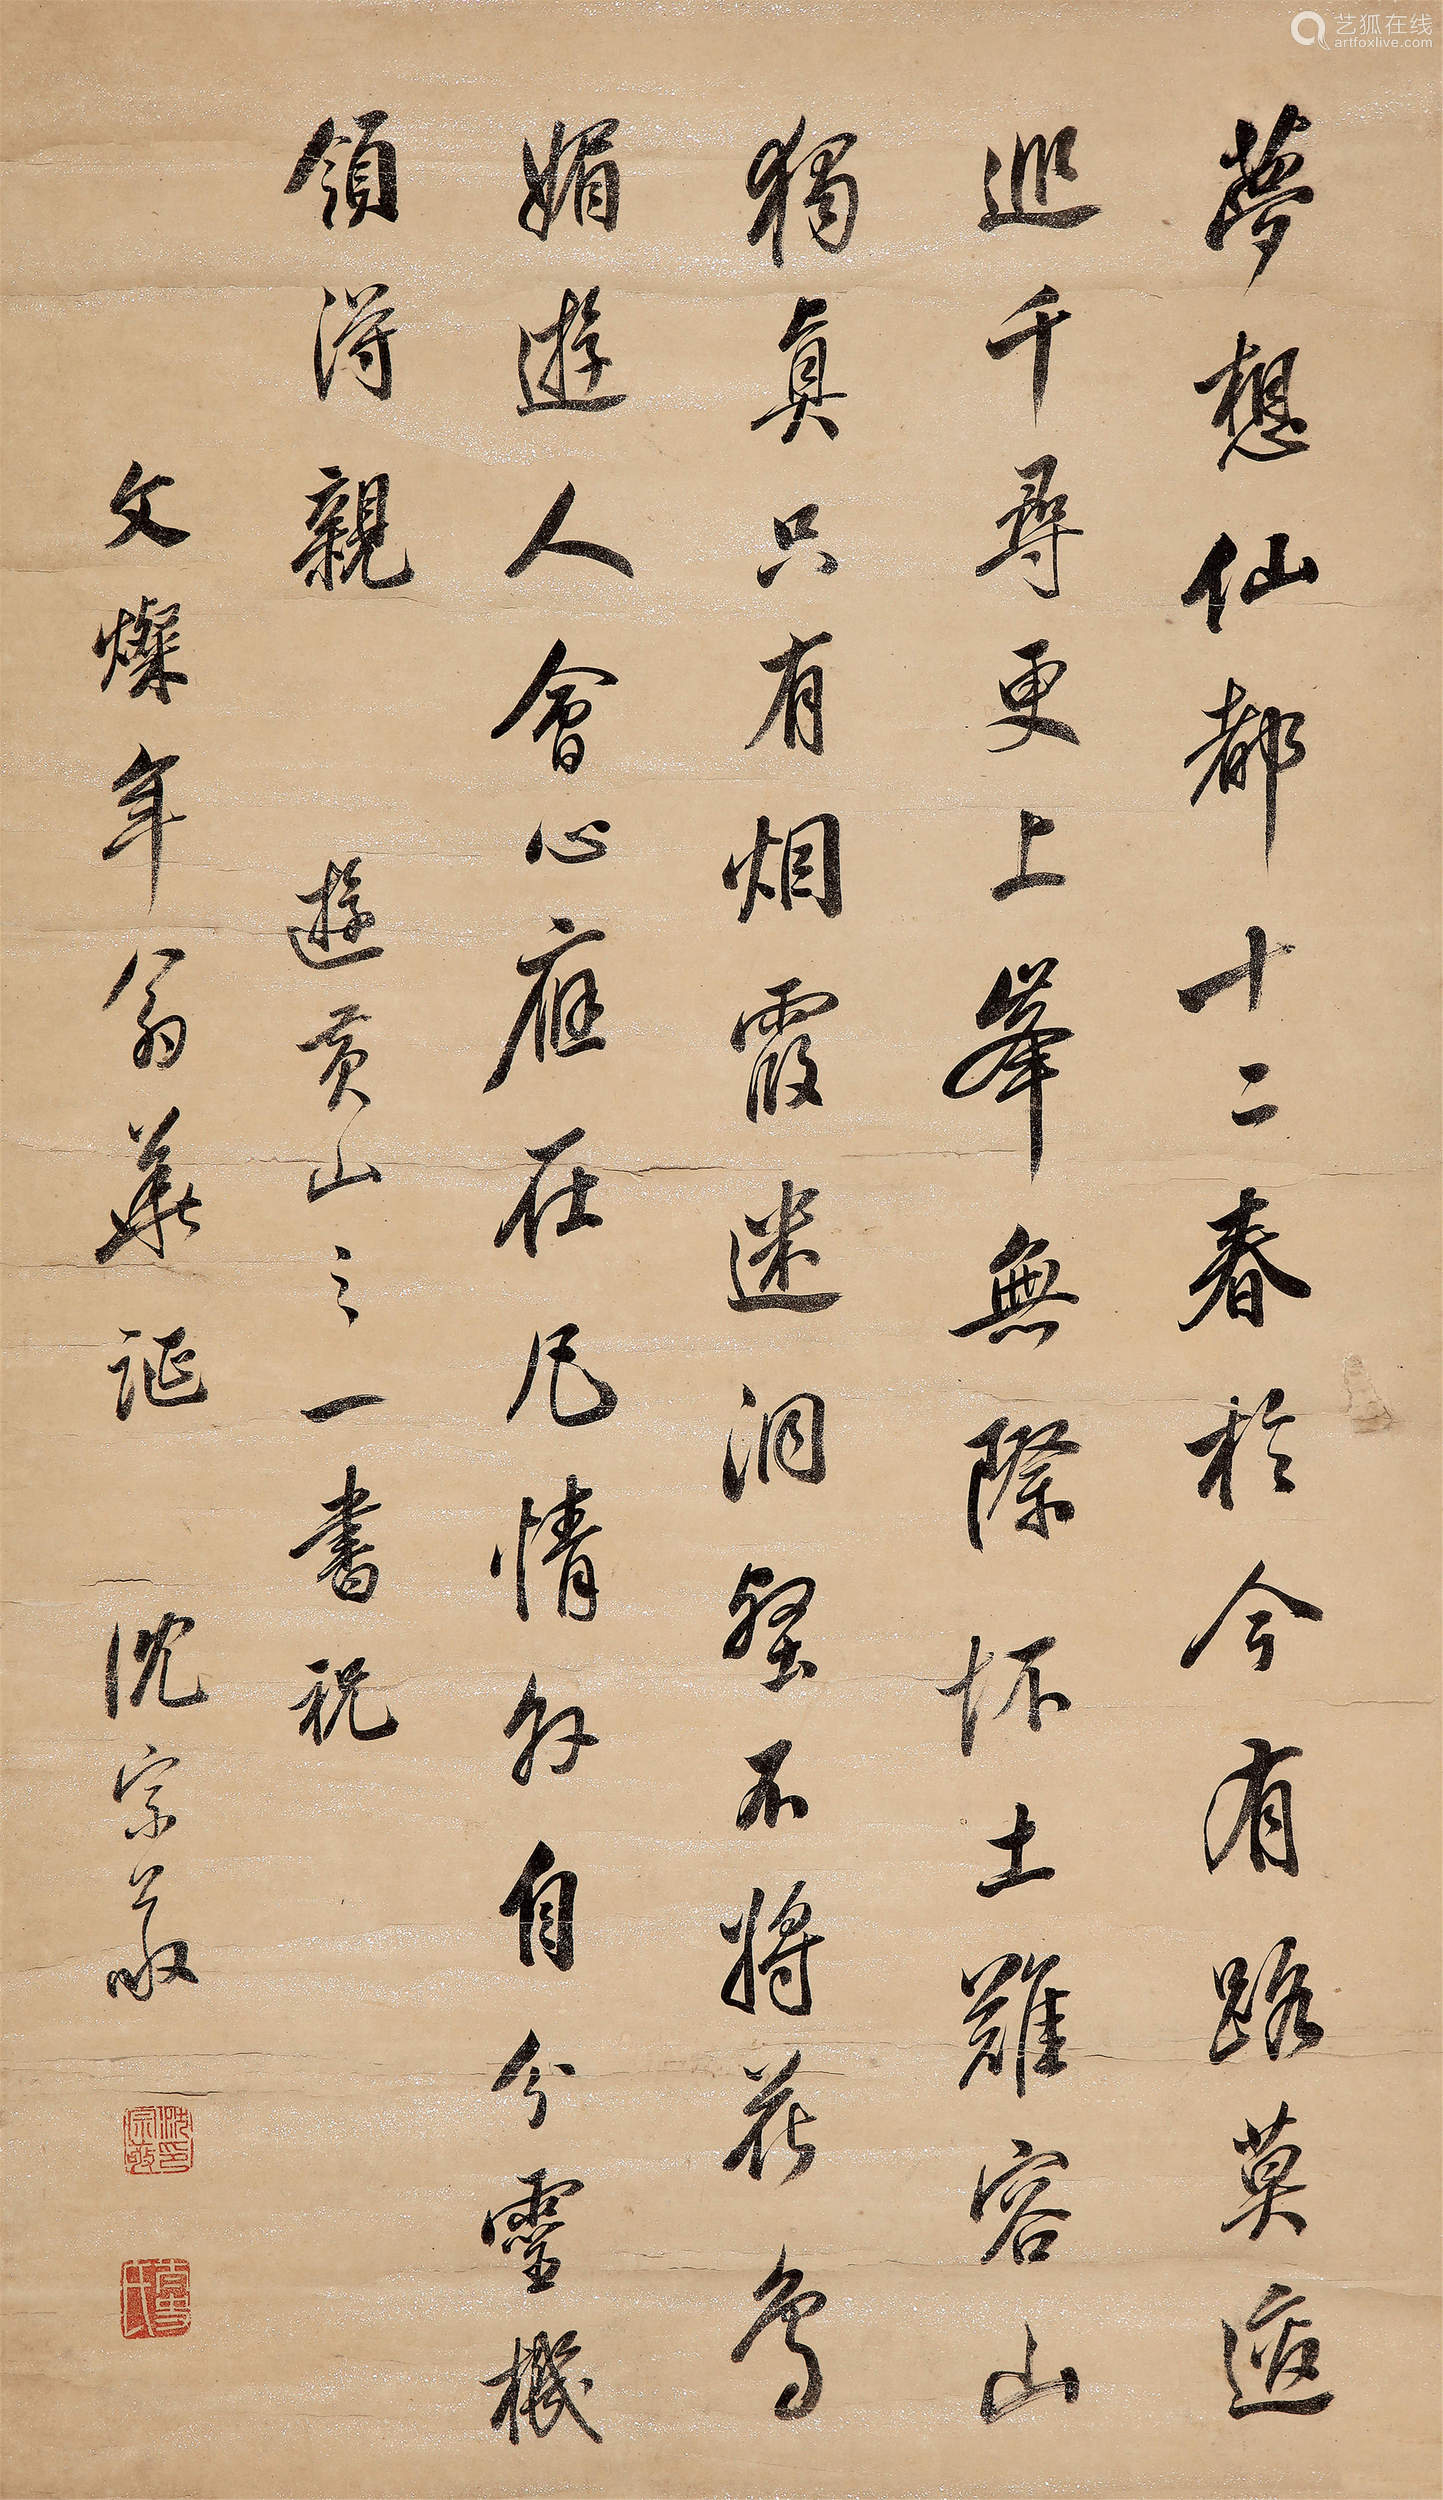 夢想仙都十二春於今有路莫逡
巡千尋更上峯無際坏土難容山
獨真只有烟霞迷洞壑不將花鳥
媚遊人會心應在凡情外自分靈機
領得親 遊黃山之一書祝
文燦年翁華誕 沈宗敬
沈宗敬印
艺狐在线
artfoxlive.com